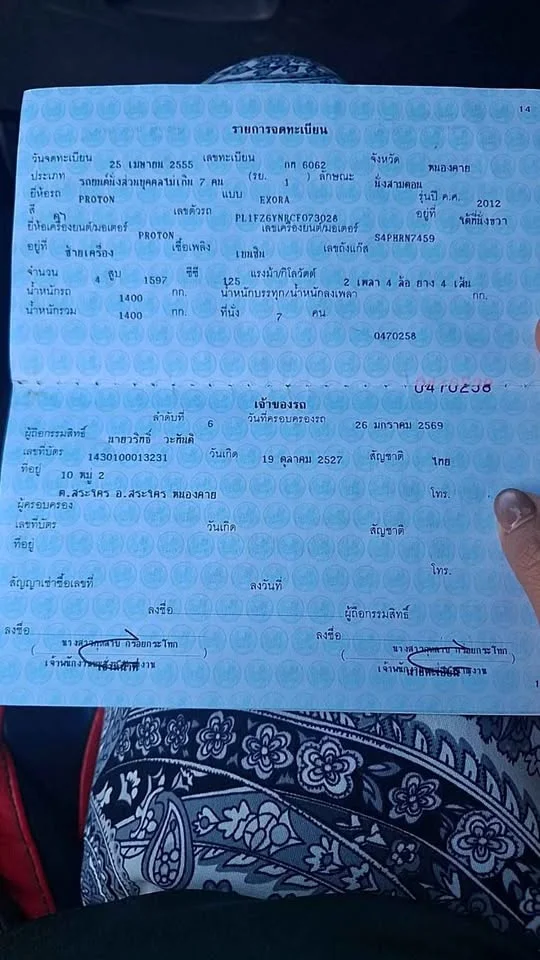 14
รายการจดทะเบียน
วันจดทะเบียน 25 เมษายน 2555 เลขทะเบียน กต 6062 จังหวัด หนองคาย
ประเภท รถยนต์นั่งส่วนบุคคลไม่เกิน 7 คน (รย. 1 ) ลักษณะ นั่งสามตอน
ยี่ห้อรถ PROTON แบบ EXORA รุ่นปี ค.ศ. 2012
สี ดำ เลขตัวรถ PL1FZ6YNRCF073028 อยู่ที่ ใต้ที่นั่งขวา
ยี่ห้อเครื่องยนต์/มอเตอร์ PROTON เลขเครื่องยนต์/มอเตอร์ S4PHRN7459
อยู่ที่ ซ้ายเครื่อง เชื้อเพลิง เบนซิน เลขถังแก๊ส
จำนวน 4 สูบ 1597 ซีซี 125 แรงม้า/กิโลวัตต์ 2 เพลา 4 ล้อ ยาง 4 เส้น
น้ำหนักรถ 1400 กก. น้ำหนักบรรทุก/น้ำหนักลงเพลา กก.
น้ำหนักรวม 1400 กก. ที่นั่ง 7 คน
0470258
0470258
เจ้าของรถ
ลำดับที่ 6 วันที่ครอบครองรถ 26 มกราคม 2569
ผู้ถือกรรมสิทธิ์ นายวริทธิ์ วะทันติ
เลขที่บัตร 1430100013231 วันเกิด 19 ตุลาคม 2527 สัญชาติ ไทย
ที่อยู่ 10 หมู่ 2
ต.สระใคร อ.สระใคร หนองคาย โทร.
ผู้ครอบครอง
เลขที่บัตร วันเกิด สัญชาติ
ที่อยู่
โทร.
สัญญาเช่าซื้อเลขที่ ลงวันที่
ลงชื่อ ผู้ถือกรรมสิทธิ์
ลงชื่อ ลงชื่อ